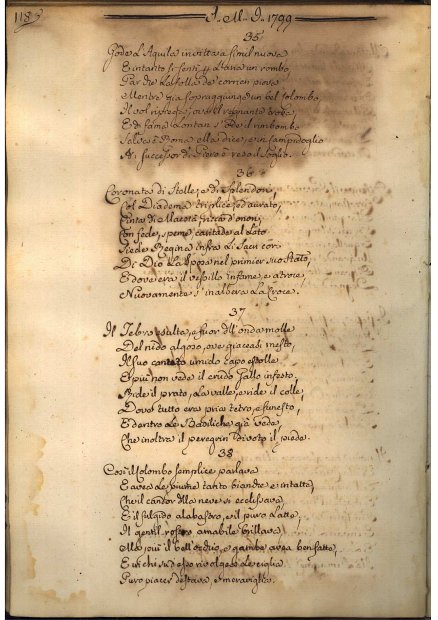 1185
A. M. D. 1799
35
Gode L'Aquila invitta a simil nuova
E intanto si sentì l'aria un rombo,
Par che
Mentre già sopraggiunge un bel Colombo
Il vol
E di fama lontan s'ode il rimbombo
Salve ò Roma ella dice, e in Campidoglio
Al successor di Piero è reso il soglio.
36
Coronata di Stelle, e di Splendori,
Col Diadema triplice, ed aurato,
Cinta di Maestà, ricca d'onori,
Con fede, speme, caritade al Lato
Siede Regina infra Li Sacri cori
Di Dio La Sposa nel primier suo Stato,
E dove era il vessillo infame, e atroce,
Nuovamente s'inalbera La Croce.
37
Il Tebro esulta, e fuor dell'onda molle
Del nido algoso, ove giaceasi mesto,
Il suo canuto umido capo estolle
E più non vede il crudo Gallo infesto,
Ride il prato, La valle, e ride il colle,
Dove tutto era pria tetro, e funesto,
E dentro Le Basiliche già vede,
Che inoltra il peregrin divoto il piede.
38
Così il Colombo semplice parlava
E avea Le piume tanto bianche, e intatte,
Che il candor della neve si ecclissava
E il fulgido alabastro, e il puro Latte,
Il gentil rostro amabile brillava,
Alla poi il bell'occhio, e gambe avea ben fatte,
E chi su d'esso rivolgea le ciglia
Puro piacer destava, e meraviglia.